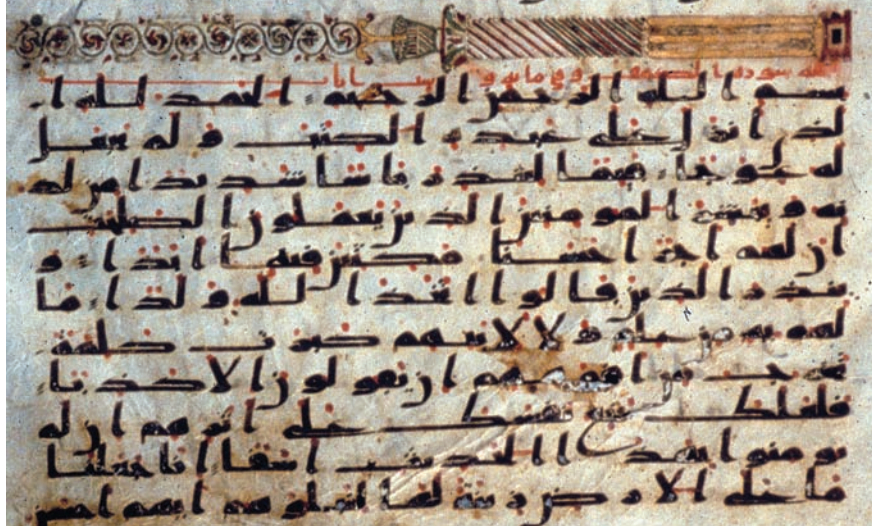 سورة الكهف مايه و ايات
بسم الله الرحمن الرحيم الحمد لله ا
لذي انزل على عبده الكتب و لم يجعل
له عوجا قيما لينذر باسا شديدا من لد
نه ويبشر المومنين الذين يعملون الصلحت
ان لهم اجرا حسنا مكثين فيه ابدا و
ينذر الذين قالوا اتخذ الله ولدا ما
لهم به من علم ولا لابيهم كبرت كلمة
تخرج من افوههم ان يقولون الا كذبا
فلعلك بخع نفسك على اثرهم ان لم
يومنوا بهذا الحديث اسفا انا جعلنا
ما على الارض زينة لها لنبلوهم ايهم احسن